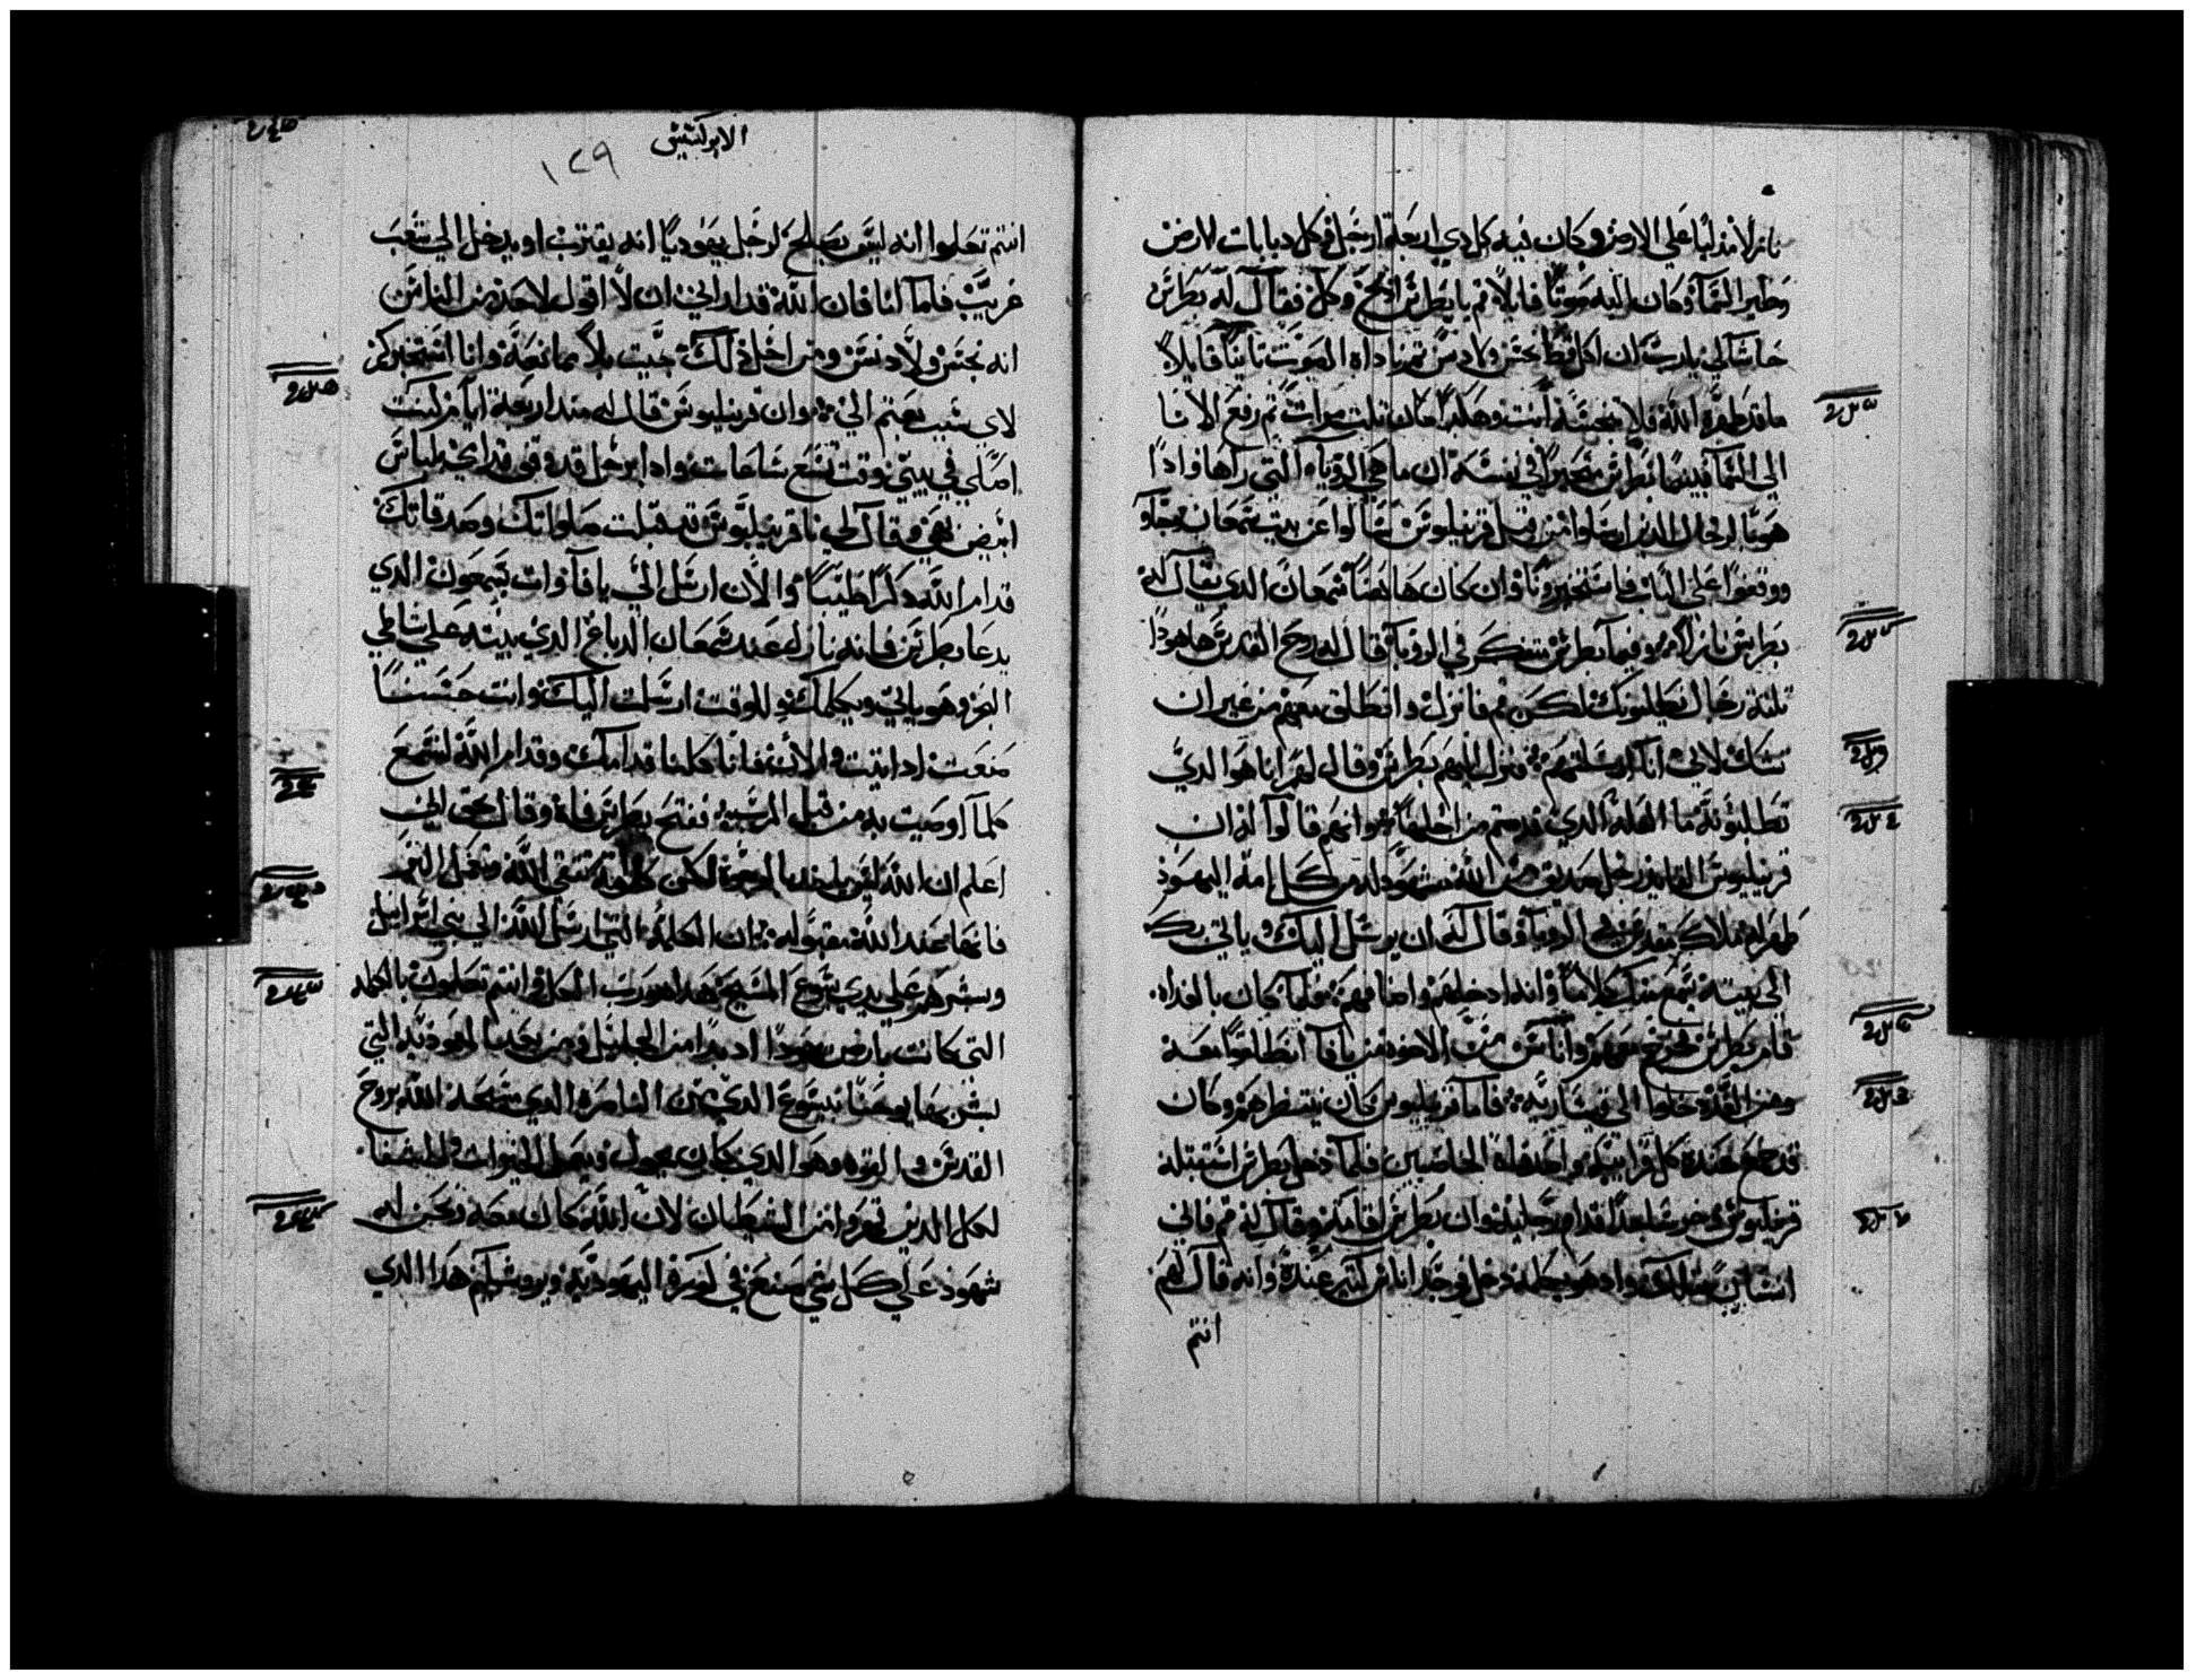 نازلا مدليا علي الارض وكان فيه كل دي اربعة ارجل وكل دبابات الارض
وطير السما وكان اليه صوتا قايلا قم يا بطرس ادبح وكل فقال له بطرس
حاشا لي يا رب ان اكل قط نجس ولا دنس ثم ناداه الصوت تانيا قايلا
ما قد طهره الله فلا تنجسه انت وهكدا كان تلت مرات ثم رفع الانا
الي السما فبينما بطرس متحيرا في نفسه ان ما هي الروياه التي راها وادا
هوبا لرجال الدين ارسلوا من قبل قرنيليوس سالوا عن بيت سمعان وجاو
ووقفوا علي الباب فاستخبرونا وان كان هاهنا سمعان الدي يقال له
بطرس نازلا وفيما بطرس متفكر في الرويا قال له روح القدس هاهودا
تلتة رجال يطلبونك لكن قم فانزل وانطلق معهم من غير ان
تشك لاني انا ارسلتهم فنزل اليهم بطرس وقال لهم انا هو الدي
تطلبونه ما العلة الدي قدمتم من اجلها وانهم قالوا له ان
قرنيليوس القايد رجل صديق متقي الله مشهود له من كل امة اليهود
ظهر له ملاك مقدس في الرويا وقال له ان يرسل اليك وياتي بك
الي بيته يسمع منك كلاما وانه ادخلهم واضافهم فلما كان بالغداه
قام بطرس فخرج معهم واناس من الاخوه من يافا انطلقوا معه
ومن الغد دخلوا الي قيسارية فاما قرنيليوس كان ينتظرهم وكان
قد جمع عنده كل قرايبه واصدقاه الخاصيين فلما دخل بطرس استقبله
قرنيليوس وخر ساجدا قدام رجليه وان بطرس اقامه وقال له قم فاني
انسان مثلك واد هو يكلمه دخل فوجد اناس كتير عنده وانه قال لهم
انتم
الابركسيس
١٢٩
انتم تعلموا انه ليس يصلح لرجل يهوديا انه يقترب او يدخل الي شعب
غريب فاما انا فان الله قد اراني ان لا اقول لاحد من الناس
انه نجس ولا دنس ومن اجل دلك جيت بلا ممانعة وانا استخبركم
لاي سبب بعتم الي وان قرنيليوس قال له مند اربعة ايام كنت
اصلي في بيتي وقت تسع ساعات وادا برجل قد وقف قدامي بلباس
ابيض بهي وقال لي يا قرنيليوس قد قبلت صلواتك وصدقاتك
قدام الله دكرا طيبا والان ارسل الي يافا وات بسمعون الدي
يدعا بطرس فانه نازل عند سمعان الدباغ الدي بيته علي شاطي
البحر وهو ياتي ويكلمك وللوقت ارسلت اليك وانت حسنا
صنعت اد اتيت والان فانا كلنا قدامك وقدام الله لنسمع
كلما اوصيت به من قبل الرب ففتح بطرس فاه وقال بحق اني
اعلم ان الله ليس ياخد بالوجوه لكن كل امة تتقي الله وتعمل البر
فانها عند الله مقبوله ان الكلمه التي ارسل الله الي بني اسراييل
وبشرهم علي يدي يسوع المسيح هدا هو رب الكل وانتم تعلمون بالكلمه
التي كانت بارض يهودا اد بدا من الجليل من بعد المعموديه التي
بشر بها يوحنا يسوع الدي من الناصره الدي مسحه الله بروح
القدس والقوه وهو الدي كان يجول ويعمل الخيرات والشفا
لكل الدين قهروا من الشيطان لان الله كان معه ونحن له
شهود علي كل شي صنع في كورة اليهودية ويروشليم هدا الدي